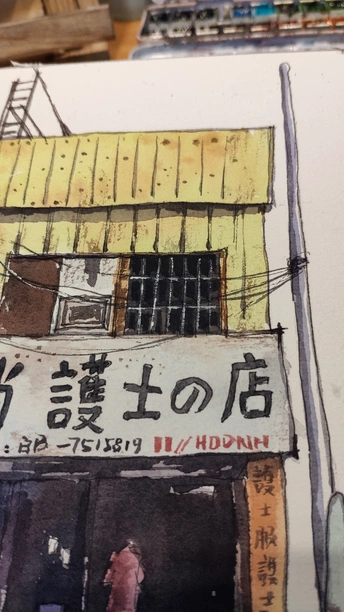 護士の店
-7515819 HODRIH
護士服護士